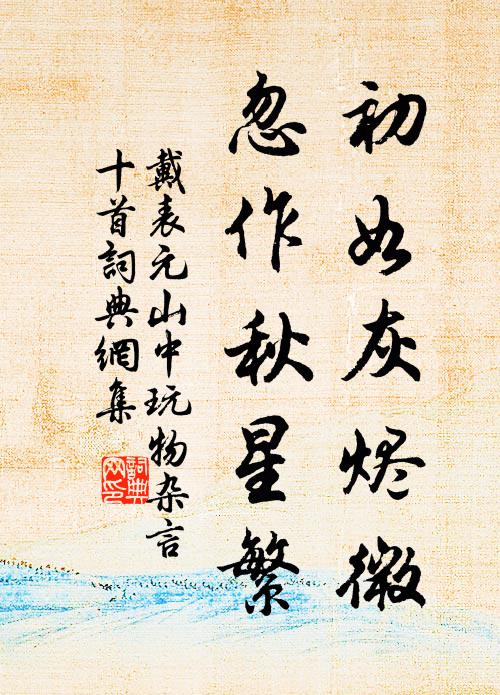 初如灰烬微
忽作秋星繁
戴表元山中玩物杂言
十首詞典網集
詞典网印